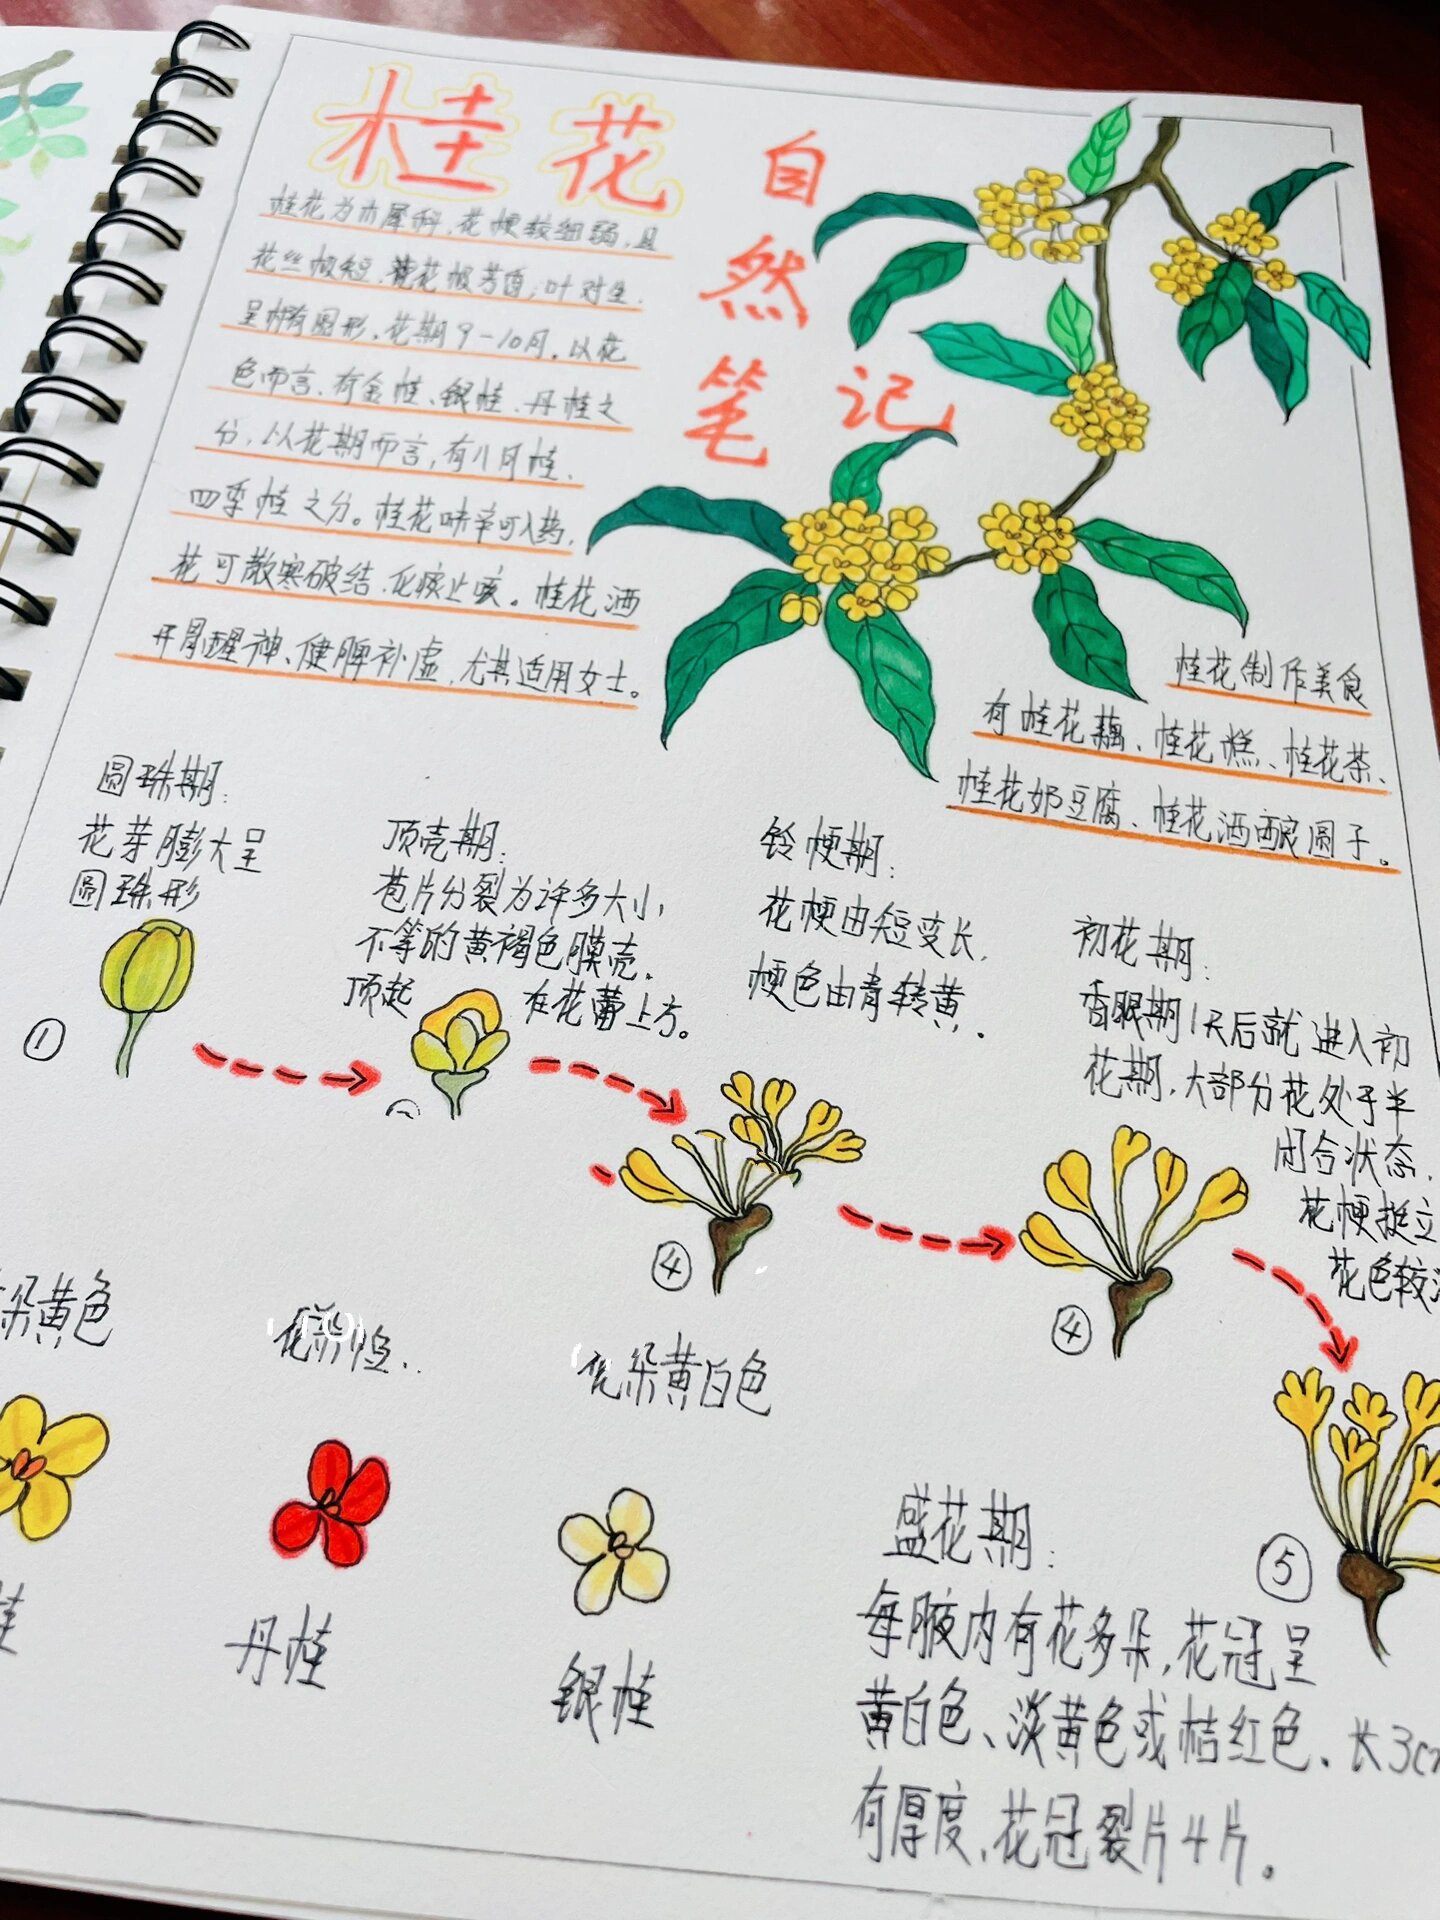 桂花
自
然
笔记
桂花为木犀科,花梗较细弱,且
花丝极短,桂花极芳香;叶对生,
呈椭圆形,花期9-10月,以花
色而言,有金桂、银桂、丹桂之
分,以花期而言,有八月桂、
四季桂之分。桂花味辛可入药,
花可散寒破结、化痰止咳。桂花酒
开胃醒神、健脾补虚,尤其适用女士。
桂花制作美食
有桂花藕、桂花糕、桂花茶、
桂花奶豆腐、桂花酒酿圆子。
圆珠期:
花芽膨大呈
圆珠形
①
顶壳期:
苞片分裂为许多大小,
不等的黄褐色膜壳,
顶起 在花蕾上方。
铃梗期:
花梗由短变长,
梗色由青转黄。
④
初花期:
香眼期1天后就进入初
花期,大部分花处于半
闭合状态,
花梗挺立
花色较
④
⑤
朵黄色
花朵黄白色
桂
丹桂
银桂
盛花期:
每腋内有花多朵,花冠呈
黄白色、淡黄色或桔红色。长3c
有厚度,花冠裂片4片。